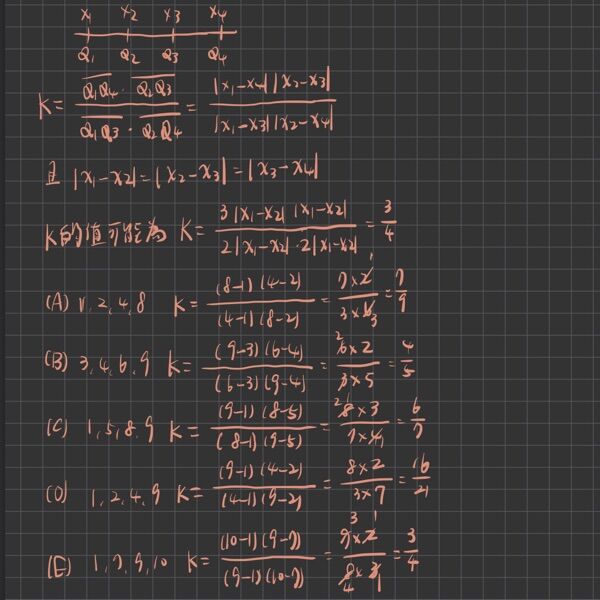 x₁ x₂ x₃ x₄
Q₁ Q₂ Q₃ Q₄
K = (Q₁Q₄ · Q₂Q₃) / (Q₁Q₃ · Q₂Q₄) = |x₁-x₄||x₂-x₃| / |x₁-x₃||x₂-x₄|
且 |x₁-x₂|=|x₂-x₃|=|x₃-x₄|
K的值可能為 K = 3|x₁-x₂| |x₁-x₂| / 2|x₁-x₂|·2|x₁-x₂| = 3/4
(A) 1, 2, 4, 8 K = (8-1)(4-2) / (4-1)(8-2) = 7×2 / 3×6 = 7/9
(B) 3, 4, 6, 9 K = (9-3)(6-4) / (6-3)(9-4) = 6×2 / 3×5 = 4/5
(C) 1, 5, 8, 9 K = (9-1)(8-5) / (8-1)(9-5) = 8×3 / 7×4 = 6/7
(D) 1, 2, 4, 9 K = (9-1)(4-2) / (4-1)(9-2) = 8×2 / 3×7 = 16/21
(E) 1, 7, 9, 10 K = (10-1)(9-7) / (9-1)(10-7) = 9×2 / 8×3 = 3/4